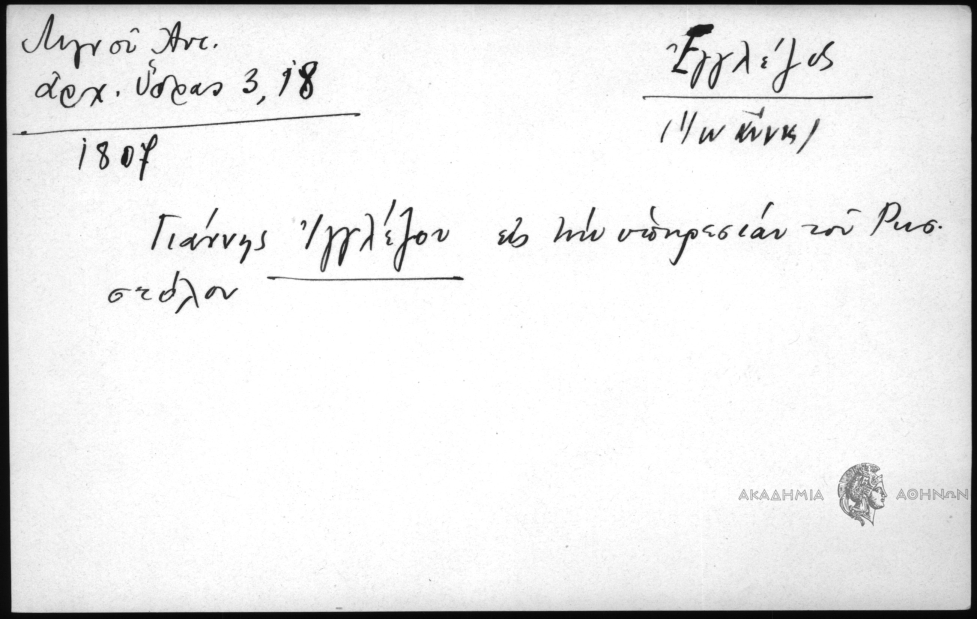 Λιγνοῦ Ἀντ.
ἀρχ. Ὕδρας 3, 18
1807
Ἐγγλέζος
(Ἰωάννης)
Γιάννης Ἰγγλέζου εἰς τήν ὑπηρεσίαν τοῦ Ρωσ.
στόλου
ΑΚΑΔΗΜΙΑ ΑΘΗΝΩΝ